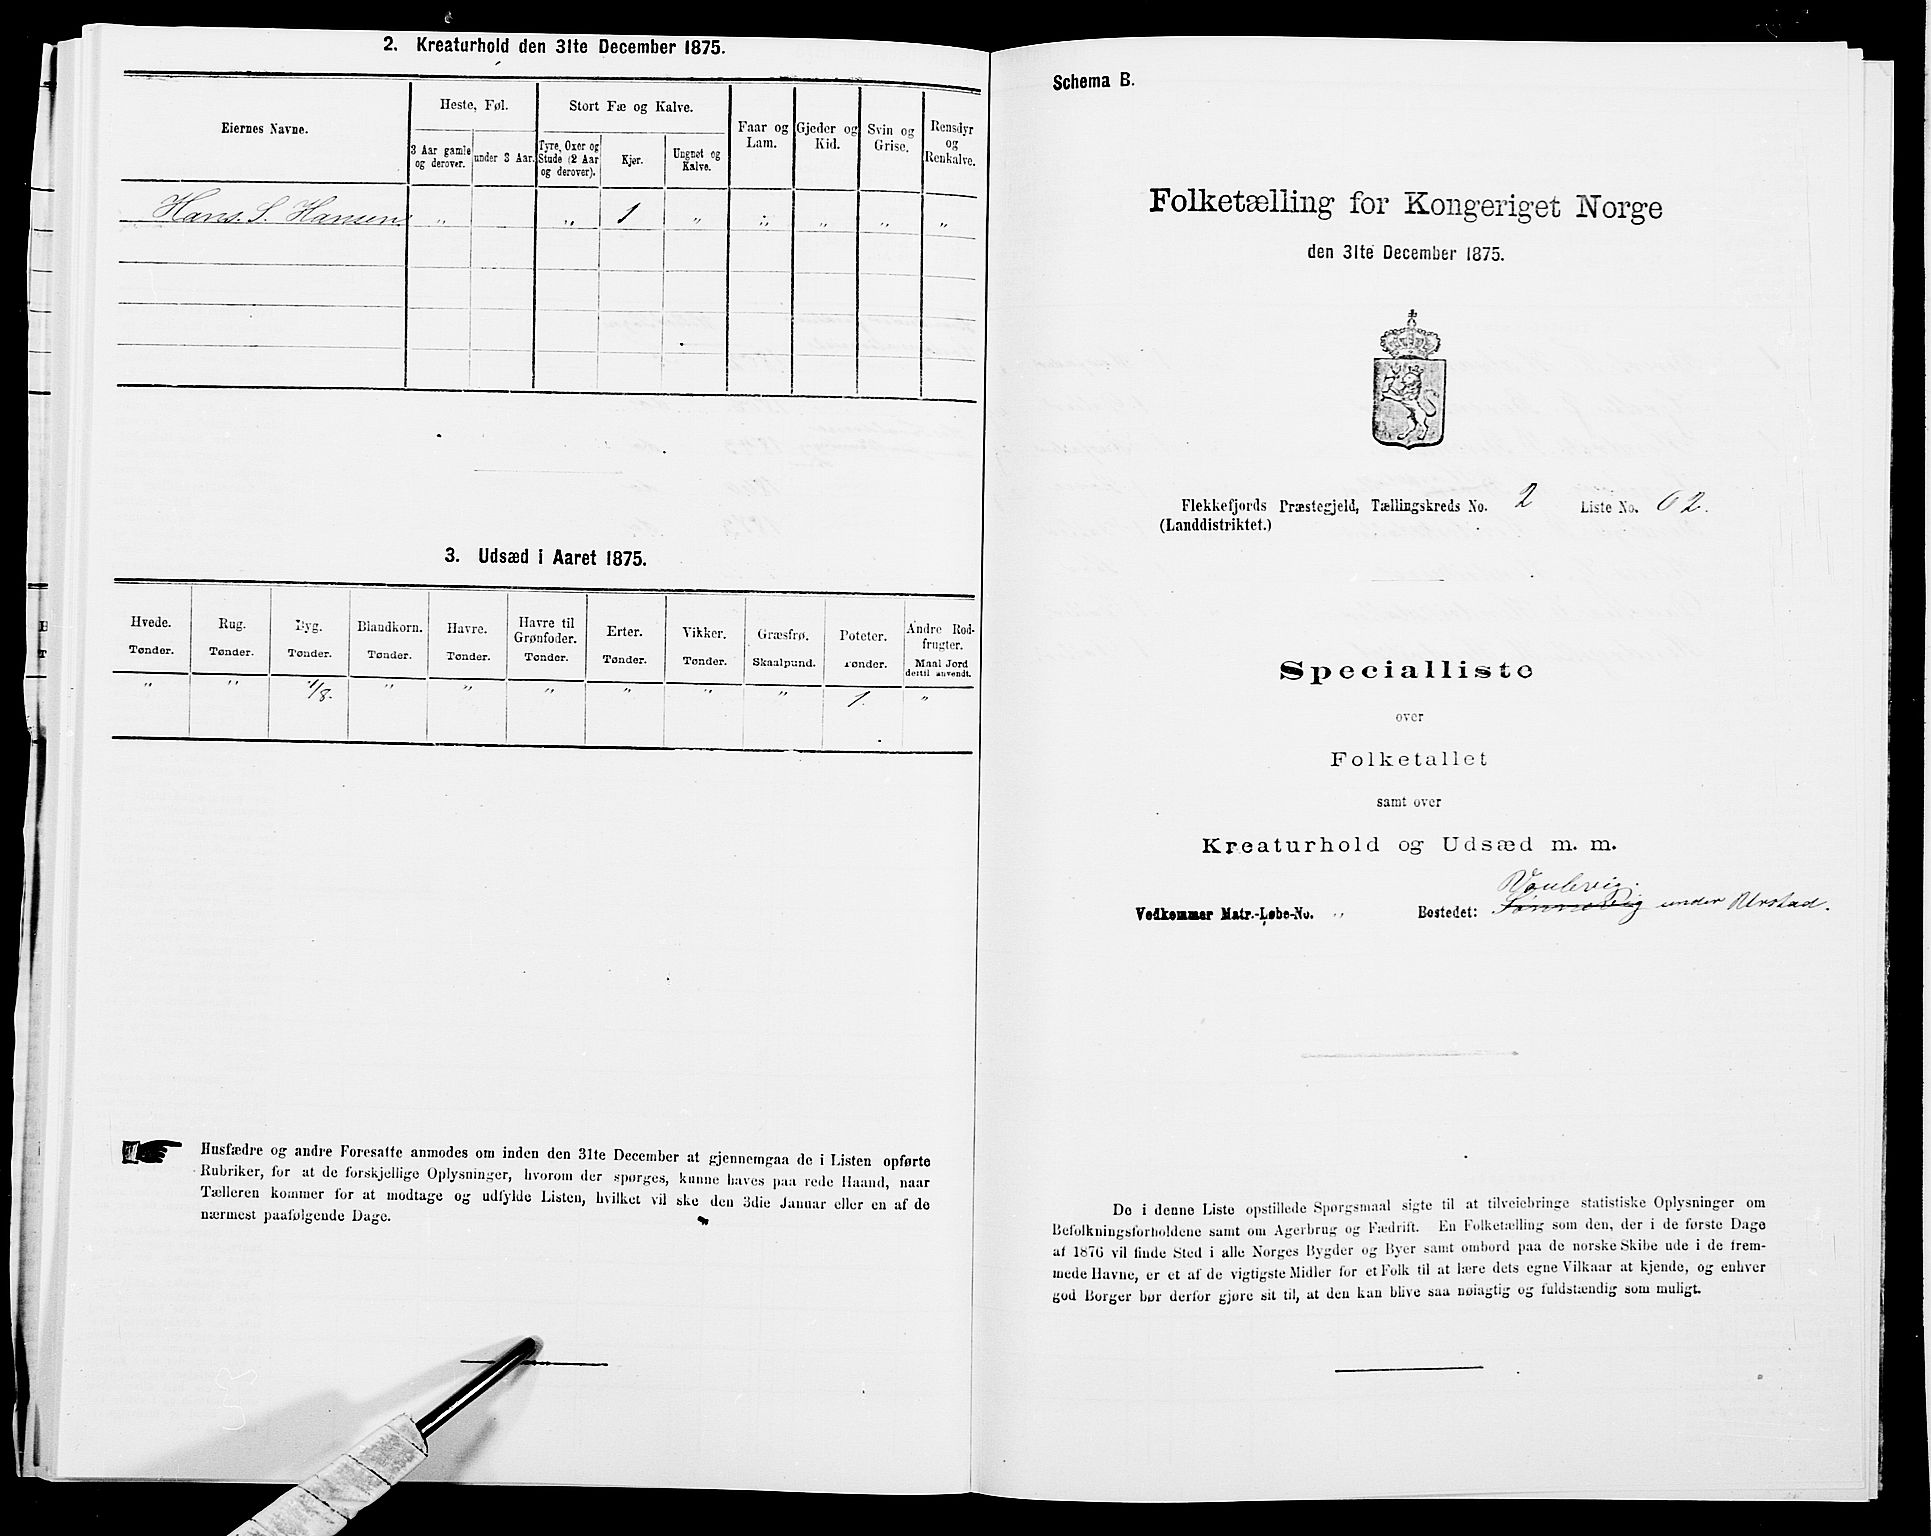 2. Kreaturhold den 31te December 1875.
Eiernes Navne.
Heste, Føl.
Stort Fæ og Kalve.
Faar og Lam.
Gjeder og Kid.
Svin og Grise.
Rensdyr og Renkalve.
3 Aar gamle og derover.
under 3 Aar.
Tyre, Oxer og Stude (2 Aar og derover).
Kjør.
Ungnøt og Kalve.
Hans S. Hansen „ „ 1 „ „ „ „ „
3. Udsæd i Aaret 1875.
Hvede. Rug. Byg. Blandkorn. Havre. Havre til Grønfoder. Erter. Vikker. Græsfrø. Poteter. Andre Rodfrugter.
Tønder. Tønder. Tønder. Tønder. Tønder. Tønder. Tønder. Tønder. Skaalpund. Tønder. Maal Jord dertil anvendt.
„ „ 1/8. „ „ „ „ „ „ 1. „
Husfædre og andre Foresatte anmodes om inden den 31te December at gjennemgaa de i Listen opførte
Rubriker, for at de forskjellige Oplysninger, hvorom der spørges, kunne haves paa rede Haand, naar
Tælleren kommer for at modtage og udfylde Listen, hvilket vil ske den 3die Januar eller en af de
nærmest paafølgende Dage.
Schema B.
Folketælling for Kongeriget Norge
den 31te December 1875.
Flekkefjords Præstegjeld, Tællingskreds No. 2 Liste No. 62.
(Landdistriktet.)
Specialliste
over
Folketallet
samt over
Kreaturhold og Udsæd m. m.
Vedkommer Matr.-Løbe-No. „ Bostedet: under
De i denne Liste opstillede Spørgsmaal sigte til at tilveiebringe statistiske Oplysninger om
Befolkningsforholdene samt om Agerbrug og Fædrift. En Folketælling som den, der i de første Dage
af 1876 vil finde Sted i alle Norges Bygder og Byer samt ombord paa de norske Skibe ude i de frem-
mede Havne, er et af de vigtigste Midler for et Folk til at lære dets egne Vilkaar at kjende, og enhver
god Borger bør derfor gjøre sit til, at den kan blive saa nøiagtig og fuldstændig som muligt.